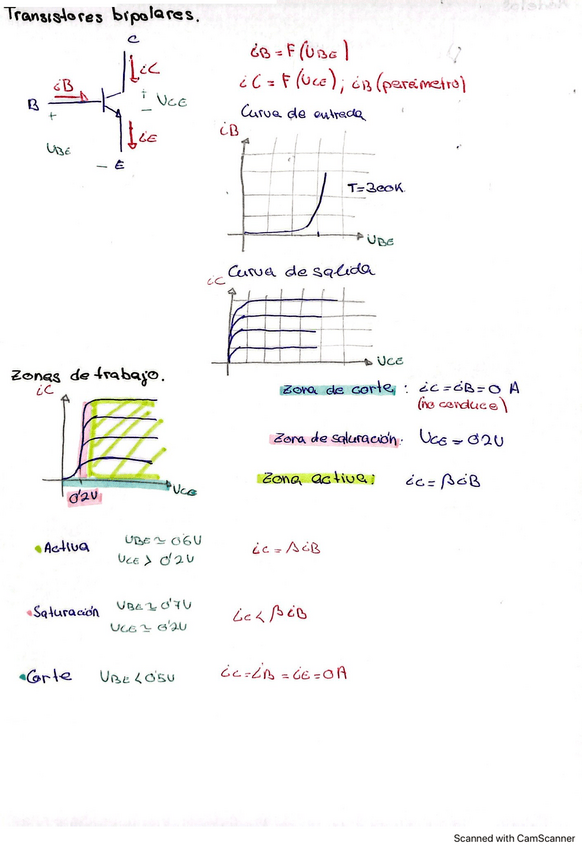 Transistores bipolares.
C
iC
iB
B
+
+
-
UCE
iE
UBE
- E
iB = F(UBE)
iC = F(UCE); iB (parámetro)
Curva de entrada
iB
T=300K
UBE
Curva de salida
iC
UCE
Zonas de trabajo.
iC
UCE
0'2V
Zona de corte: iC=iB=0 A
(no conduce)
Zona de saturación. UCE = 0'2V
Zona activa: iC=βiB
Activa UBE ≃ 0'6V iC = βiB
UCE > 0'2V
Saturación UBE ≃ 0'7V iC < βiB
UCE ≃ 0'2V
Corte UBE < 0'5V iC=iB=iE=0A
Scanned with CamScanner